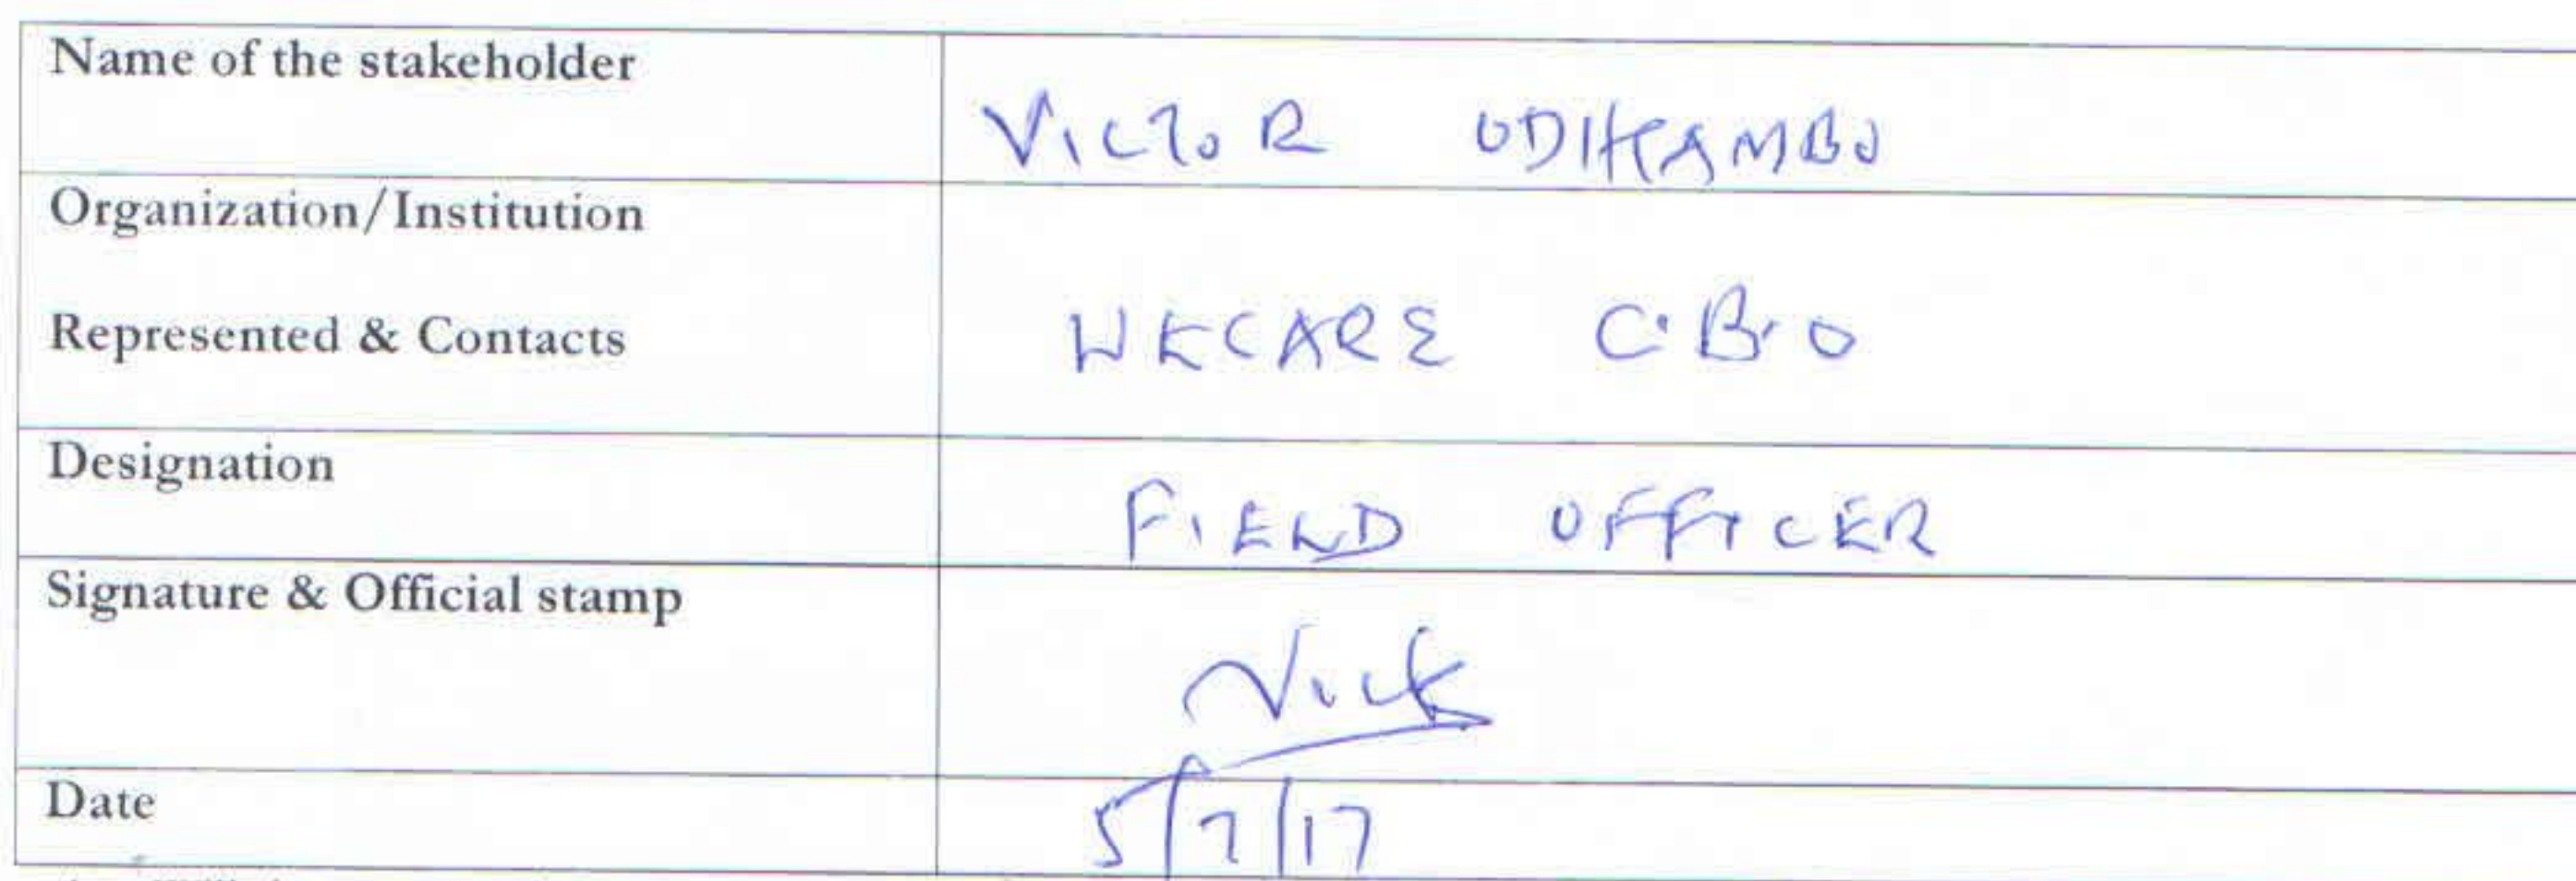 Name of the stakeholder
VICTOR ODHIAMBO
Organization/Institution
Represented & Contacts
WECARE C.B.O
Designation
FIELD OFFICER
Signature & Official stamp
Vick
Date
5/7/17